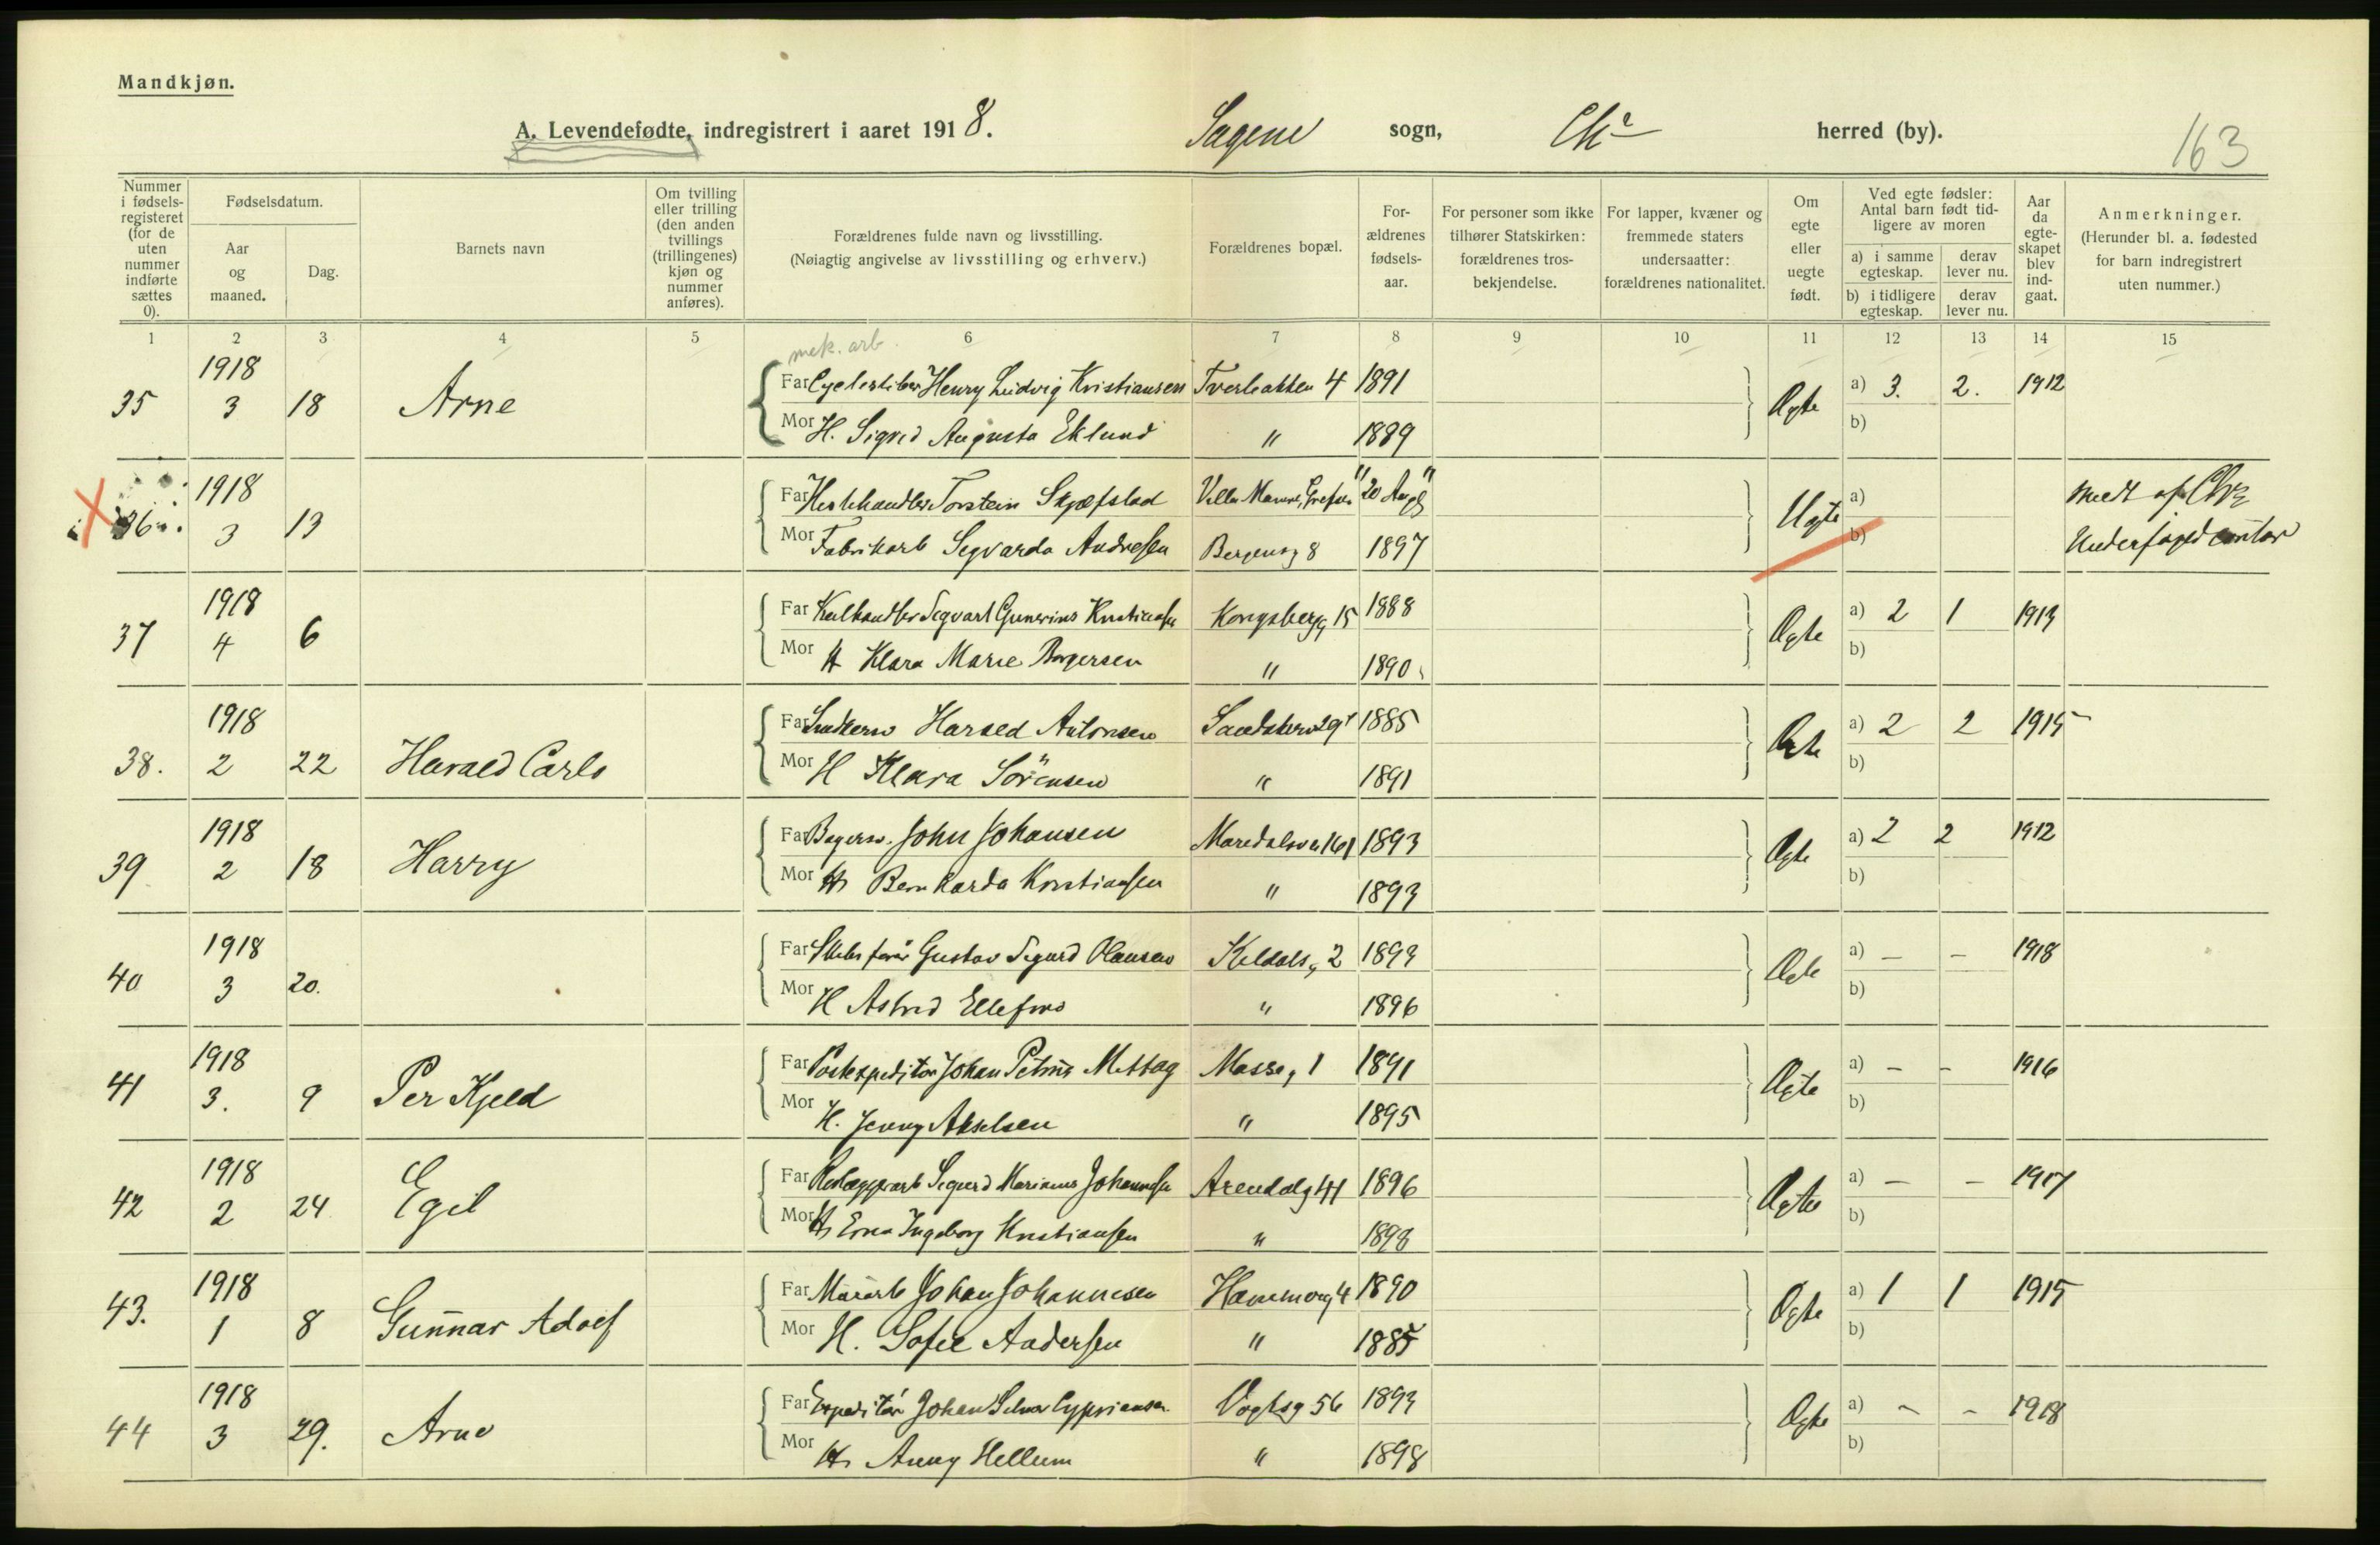 Mandkjøn.
A. Levendefødte, indregistrert i aaret 1918. Sagene sogn, Chr herred (by). 163
Nummer i fødselsregisteret (for de uten nummer indførte sættes 0).
Fødselsdatum.
Aar og maaned.
Dag.
Barnets navn
Om tvilling eller trilling (den anden tvillings (trillingenes) kjøn og nummer anføres).
Forældrenes fulde navn og livsstilling.
(Nøiagtig angivelse av livsstilling og erhverv.)
Forældrenes bopæl.
Forældrenes fødselsaar.
For personer som ikke tilhører Statskirken: forældrenes trosbekjendelse.
For lapper, kvæner og fremmede staters undersaatter: forældrenes nationalitet.
Om egte eller uegte født.
Ved egte fødsler: Antal barn født tidligere av moren
a) i samme egteskap.
derav lever nu.
b) i tidligere egteskap.
derav lever nu.
Aar da egteskapet blev indgaat.
Anmerkninger.
(Herunder bl. a. fødested for barn indregistrert uten nummer.)
1 2 3 4 5 6 7 8 9 10 11 12 13 14 15
mek. arb.
35 1918 3 18 Arne Far Henry Ludvig Kristiansen Tverbakken 4 1891 Ægte a) 3. 2. 1912
Mor H. Sigrid Augusta Eklund " 1889 b)
36 1918 3 13 Far Hestehandler Torstein Skjefstad Villa Grefsen "20 Aar" Uegte a)
Mor Fabrikarb Segvarda Andresen Bergensg 8 1897 b)
37 1918 4 6 Far Kulhandler Segvart Gunerius Kristiansen Kongsbergg 15 1888 Ægte a) 2 1 1913
Mor H Klara Marie Borgersen " 1890 b)
38. 1918 2 22 Harald Carlo Far Harald Antonsen 1885 Ægte a) 2 2 1915
Mor H Klara Sörensen " 1891 b)
39 1918 2 18 Harry Far Bagersv. John Johansen Maridalsv 161 1893 Ægte a) 2 2 1912
Mor H Bernharda Kristiansen " 1893 b)
40 1918 3 20. Far Gustav Sigurd Olausen Keldals, 2 1893 Ægte a) — — 1918
Mor H Astrid Ellefsen " 1896 b)
41 1918 3. 9 Per Kjeld Far Postexpeditør Johan Petrus Mosseg 1 1891 Ægte a) — — 1916
Mor H. Jenny Akselsen " 1895 b)
42 1918 2 24 Egil Far Sigurd Marinius Johannesen Arendalsg 41 1896 Ægte a) — — 1917
Mor H Erna Ingeborg Kristiansen " 1898 b)
43. 1918 1 8 Gunnar Adolf Far Murarb Johan Johannesen 1890 Ægte a) 1 1 1915
Mor H. Sofie Andersen " 1885 b)
44 1918 3 29. Arne Far Expeditør Johan Selmer Cypriansen Vogtsg 56 1893 Ægte a) — — 1918
Mor H Anny Hellum " 1898 b)